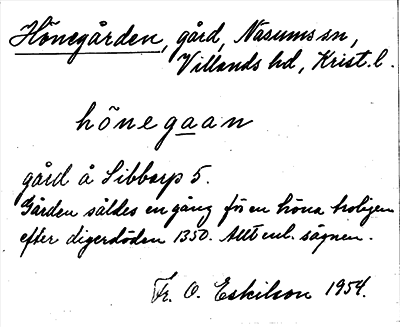 Hönegården, gård, Nasums sn,
Villands hd, Krist. l.
hönegaan
gård å Sibbarp 5.
Gården såldes en gång för en höna troligen
efter digerdöden 1350. Allt enl. sägnen.
Fr. O. Eskilson 1954.